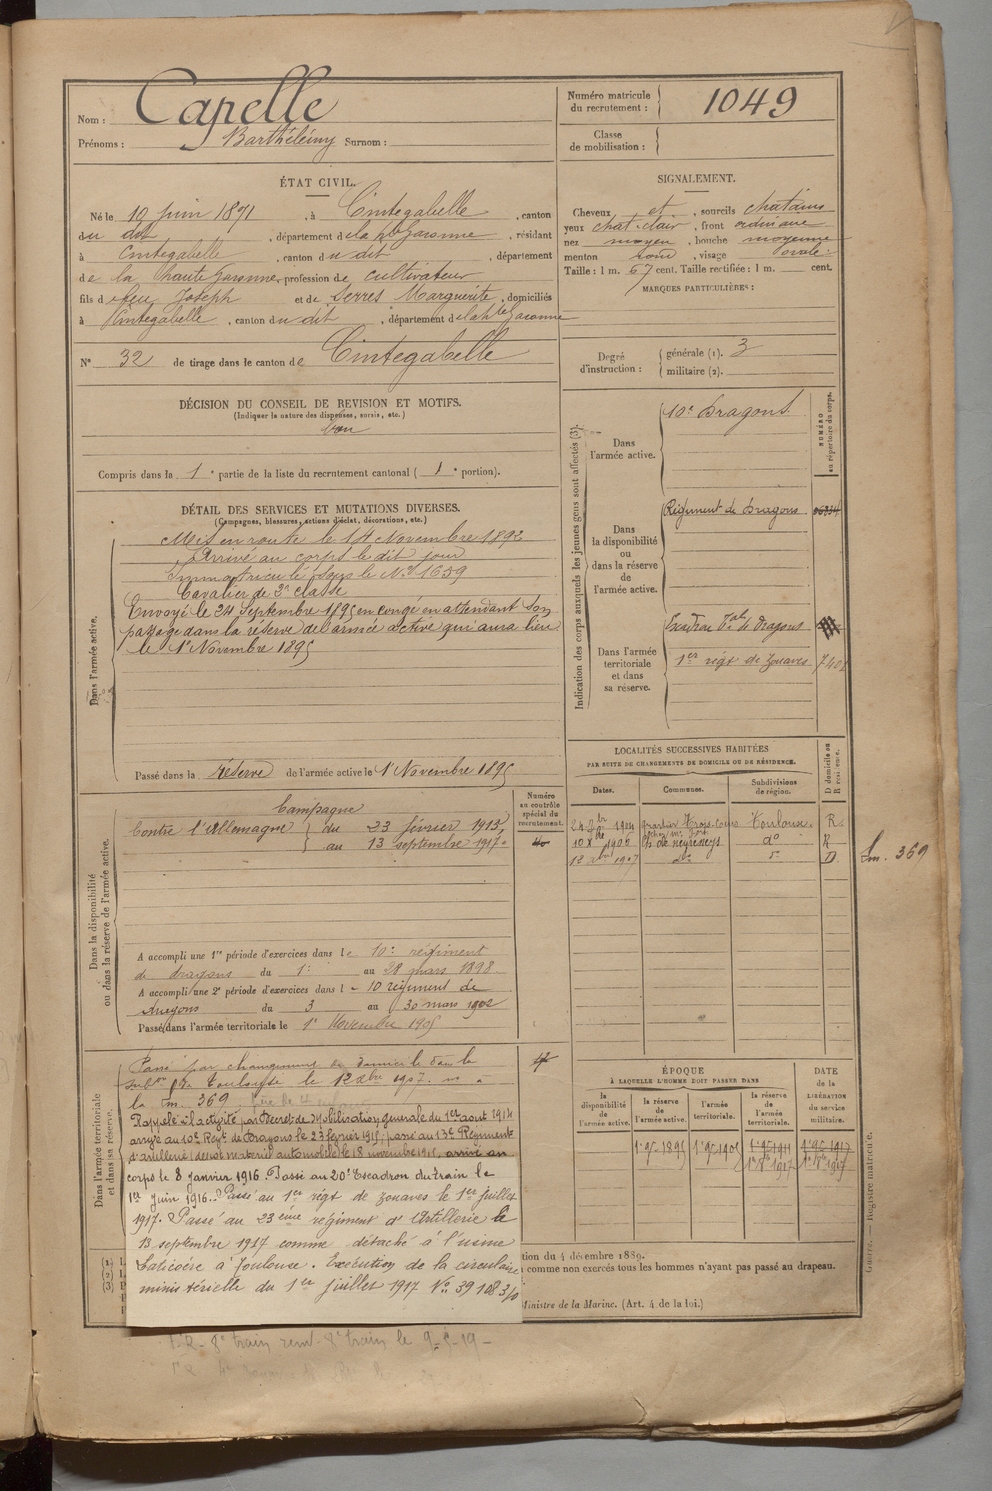 Nom : Capelle
Prénoms : Barthélémy Surnom :
Numéro matricule du recrutement : 1049
Classe de mobilisation :
ÉTAT CIVIL.
Né le 10 Juin 1871, à Cintegabelle, canton
du dit, département de la hte Garonne, résidant
à Cintegabelle, canton du dit, département
de la haute Garonne, profession de cultivateur
fils de feu Joseph et de Serres Marguerite, domiciliés
à Cintegabelle, canton du dit, département de la hte Garonne
N° 32 de tirage dans le canton de Cintegabelle
SIGNALEMENT.
Cheveux et, sourcils chatains
yeux chat. clair, front ordinaire
nez moyen, bouche moyenne
menton rond, visage ovale
Taille : 1 m. 67 cent. Taille rectifiée : 1 m. cent.
MARQUES PARTICULIÈRES :
Degré d'instruction : générale (1). 3
militaire (2).
DÉCISION DU CONSEIL DE REVISION ET MOTIFS.
(Indiquer la nature des dispenses, sursis, etc.)
bon
Compris dans la 1e partie de la liste du recrutement cantonal ( 1e portion).
DÉTAIL DES SERVICES ET MUTATIONS DIVERSES.
(Campagnes, blessures, actions d'éclat, décorations, etc.)
Dans l'armée active.
Mis en route le 14 Novembre 1892
Arrivé au corps le dit jour
Immatriculé sous le N° 1659
Cavalier de 2e classe
Envoyé le 24 Septembre 1895 en congé en attendant son
passage dans la réserve de l'armée active qui aura lieu
le 1er Novembre 1895
Passé dans la réserve de l'armée active le 1er Novembre 1895
Indication des corps auxquels les jeunes gens sont affectés (3).
NUMÉRO au répertoire du corps.
Dans l'armée active.
10e Dragons
Dans la disponibilité ou dans la réserve de l'armée active.
Régiment de Dragons
Dans l'armée territoriale et dans sa réserve.
Escadron Tal de dragons
1er régt de Zouaves
LOCALITÉS SUCCESSIVES HABITÉES
PAR SUITE DE CHANGEMENTS DE DOMICILE OU DE RÉSIDENCE.
Dates. Communes. Subdivisions de région. D domicile ou R résidence.
1904 Toulouse R
1906 do R
1907 do do D
Lm. 369
Dans la disponibilité ou dans la réserve de l'armée active.
Numéro au contrôle spécial du recrutement.
Campagne
Contre l'Allemagne du 23 février 1915
au 13 septembre 1917
A accompli une 1re période d'exercices dans le 10e régiment
de dragons du 1er au 28 mars 1898
A accompli une 2e période d'exercices dans le 10 régiment de
dragons du 3 au 30 mars 1902
Passé dans l'armée territoriale le 1er Novembre 1905
Dans l'armée territoriale et dans sa réserve.
Passé par changement de domicile dans la
subon de Toulouse le 12 xbre 1907. n° à
la Lm. 369
Rappelé à l'activité par Décret de Mobilisation générale du 1er aout 1914
arrivé au 10e Régt de Dragons le 23 février 1915, passé au 13e Régiment
d'artillerie (dépôt matériel automobile) le 18 novembre 1915, arrivé au
corps le 8 janvier 1916. Passé au 20e Escadron du train le
1er Juin 1916. Passé au 1er régt de zouaves le 1er juillet
1917. Passé au 23ème régiment d'Artillerie le
13 septembre 1917 comme détaché à l'usine
Latécoère à Toulouse. Exécution de la circulaire
ministérielle du 1er juillet 1917 No 39108 3/10
ÉPOQUE
À LAQUELLE L'HOMME DOIT PASSER DANS
la disponibilité de l'armée active. la réserve de l'armée active. l'armée territoriale. la réserve de l'armée territoriale.
DATE de la LIBÉRATION du service militaire.
1er 9bre 1895 1er 9bre 1905 1er 9bre 1911 1er 9bre 1917
1er 9bre 1917
tion du 4 décembre 1889.
comme non exercés tous les hommes n'ayant pas passé au drapeau.
Ministre de la Marine. (Art. 4 de la loi.)
Guerre. — Registre matricule.
8e train le 9-5-19